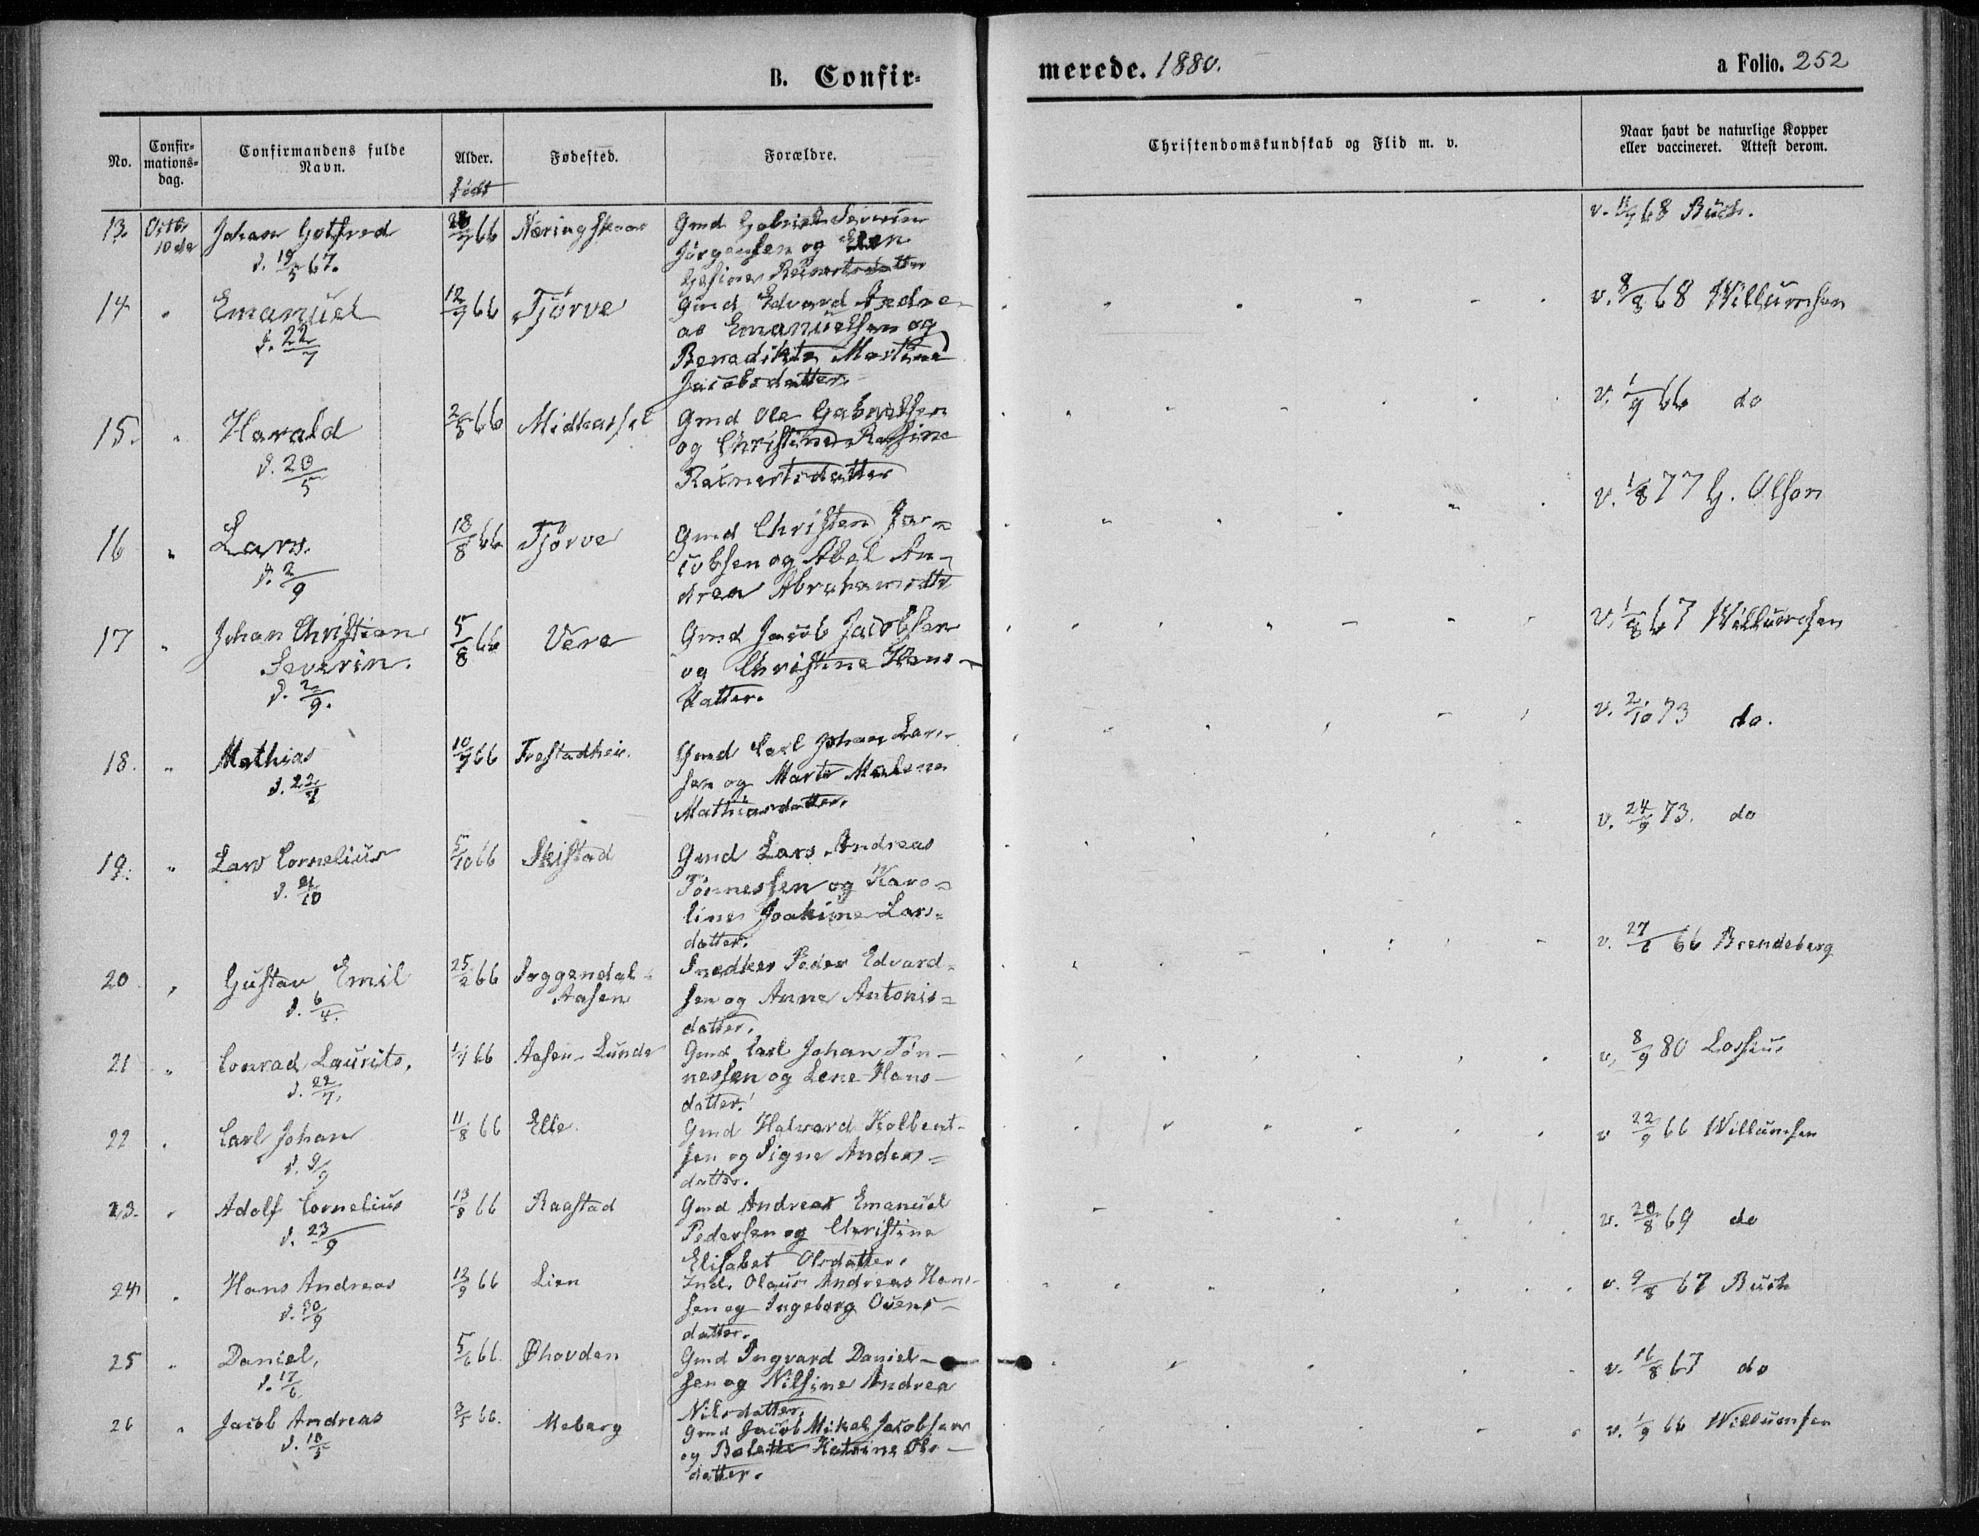 B. Confir-
merede. 1880.
a Folio. 252
No. Confir-mations-dag. Confirmandens fulde Navn. Alder. født Fødested. Forældre. Christendomskundskab og Flid m. v. Naar havt de naturlige Kopper eller vaccineret. Attest derom.
13. Octbr 10de Johan Gotfred 66 Gmd Gabriel Severin 68 Buch.
d. 19/5 67. Jørgensen og Elen
Reinertsdatter
14 " Emanuel 12/7 66 Tjørve Gmd Edvard Andre- v. 8/8 68 Willumsen
d. 22/7 as Emanuelsen og
Benedikte Martine
Jacobsdatter.
15. " Harald 66 Midhassel Gmd Ole Gabrielsen v. 1/9 66 do
d. 20/5 og Christine Rasine
Reinertsdatter
16 " Lars. 18/8 66 Tjørve Gmd Christen Ja- v. 1/8 77 G. Olsen
d. 2/9 cobsen og Abel An-
drea Abrahamsdtr
17 " Johan Christian 5/8 66 Vere Gmd Jacob Jacobsen v. 1/8 67 Willumsen
Severin. og Christine Hans-
d. 2/9. datter.
18. " Mathias 10/7 66 Gmd Carl Johan Lar- v. 2/10 73 do.
d. 22/7 sen og Marte Malene
Mathiasdatter.
19. " Lars Cornelius 5/10 66 Skistad Gmd Lars Andreas v. 24/9 73. do
d. 21/10 Tønnessen og Karo-
line Joakime Lars-
datter.
20 " Gustav Emil 25/2 66 Soggendal- Snedker Peder Edvard- v. 27/6 66 Brendeberg
d. 6/4. Aasen sen og Anne Antonis-
datter.
21 " Conrad Laurits. 66 Aasen-Lunde Gmd Carl Johan Tøn- v. 8/9 80 Lossius
d. 22/7. nessen og Lene Hans-
datter.
22 " Carl Johan 11/8 66 Elle. Gmd Halvard Kolbent- v 22/9 66 Willumsen
d. 9/9 sen og Signe Anders-
datter.
23. " Adolf Cornelius 13/8 66 Raastad Gmd Andreas Emanuel v. 20/8 69 do
d. 23/9 Pedersen og Christine
Elisabet Olsdatter.
24 " Hans Andreas 12/9 66 Lien Ind. Olaus Andreas Han- v. 9/8 67 Buch
d. 30/9 sen og Ingeborg Ouens-
datter.
25 " Daniel. 5/6 66. Øhovden Gmd Ingvard Daniel- v. 16/8 67 do
d. 17/6 sen og Nilsine Andrea
Nilsdatter.
26 " Jacob Andreas 3/5 66. Meberg Gmd Jacob Mikal Jacobsen v. 1/9 66 Willumsen
d. 10/5 og Bolette Katrine Ols-
datter.